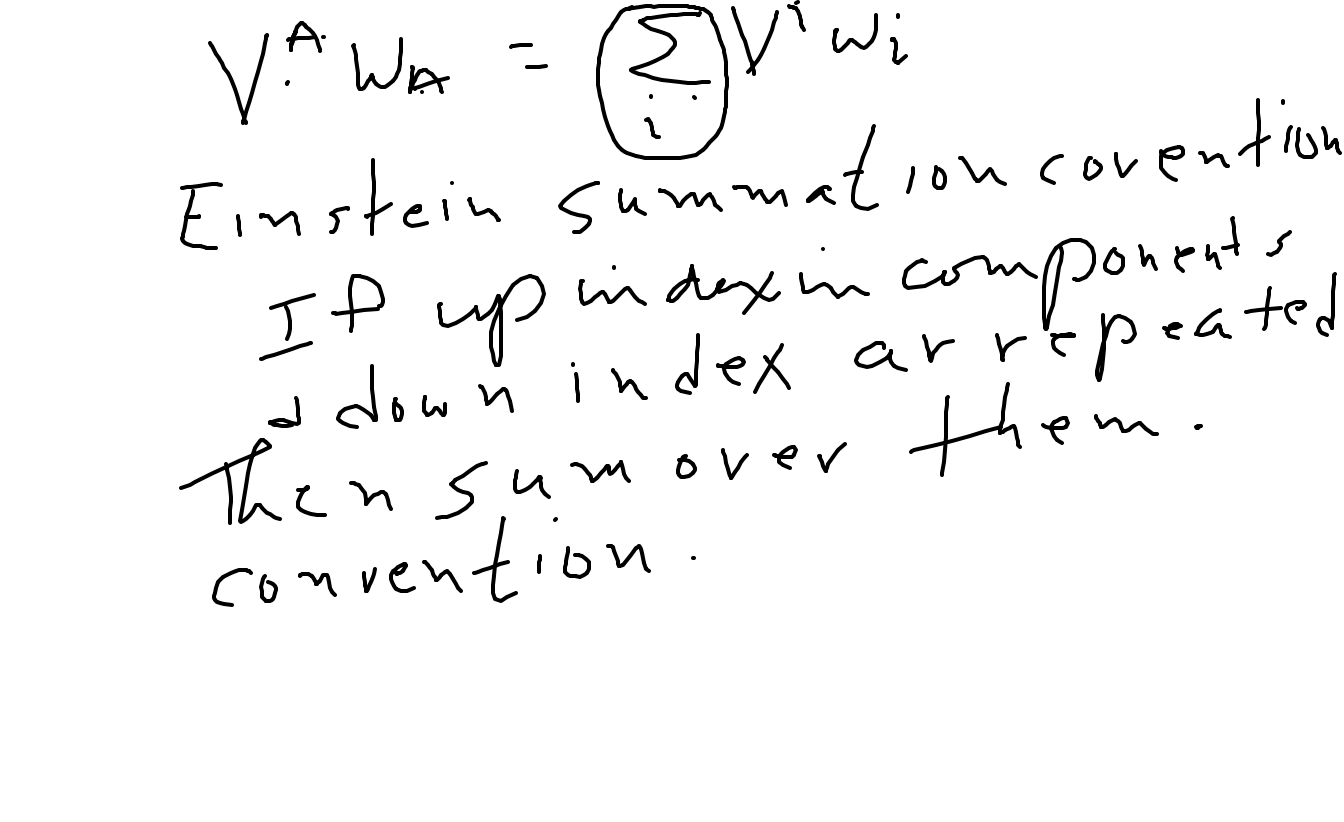 V^A W_A = Σ_i V^i w_i
Einstein summation covention
If up index in components
& down index ar repeated
Then sum over them.
convention.